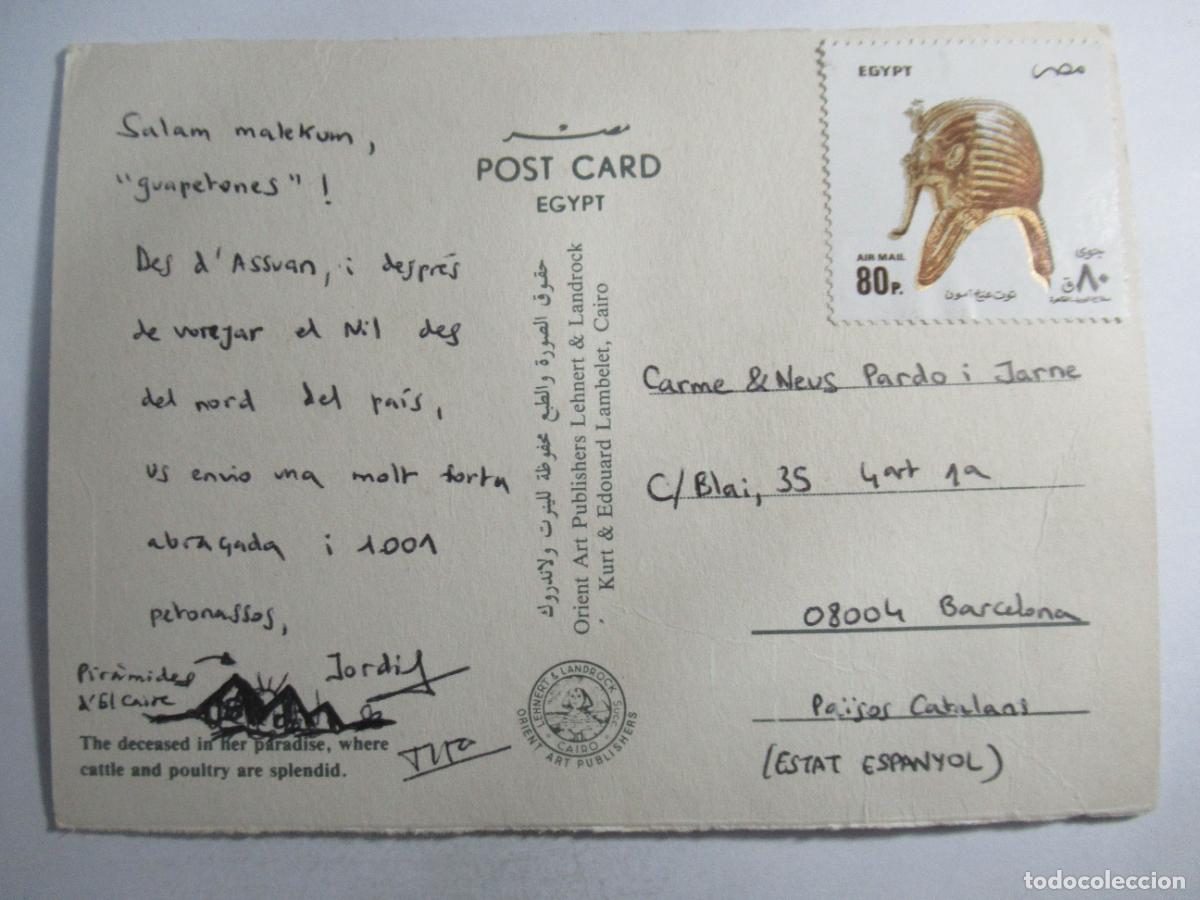 Salam malekum,
"guapetones"!
Des d'Assuan, i després
de vorejar el Nil des
del nord del país,
us envio una molt forta
abraçada i 1.001
petonassos,
Jordi
Piràmides
d'El Caire
The deceased in her paradise, where
cattle and poultry are splendid.
مصر
POST CARD
EGYPT
حقوق الصورة والطبع محفوظة للينرت ولاندروك
Orient Art Publishers Lehnert & Landrock
Kurt & Edouard Lambelet, Cairo
LEHNERT & LANDROCK Succ.
CAIRO
ORIENT ART PUBLISHERS
EGYPT مصر
AIR MAIL
80P.
جوى
٨٠ق
توت عنخ آمون
Carme & Neus Pardo i Jarne
C/Blai, 35 4art 1a
08004 Barcelona
Països Catalans
(ESTAT ESPANYOL)
todocoleccion